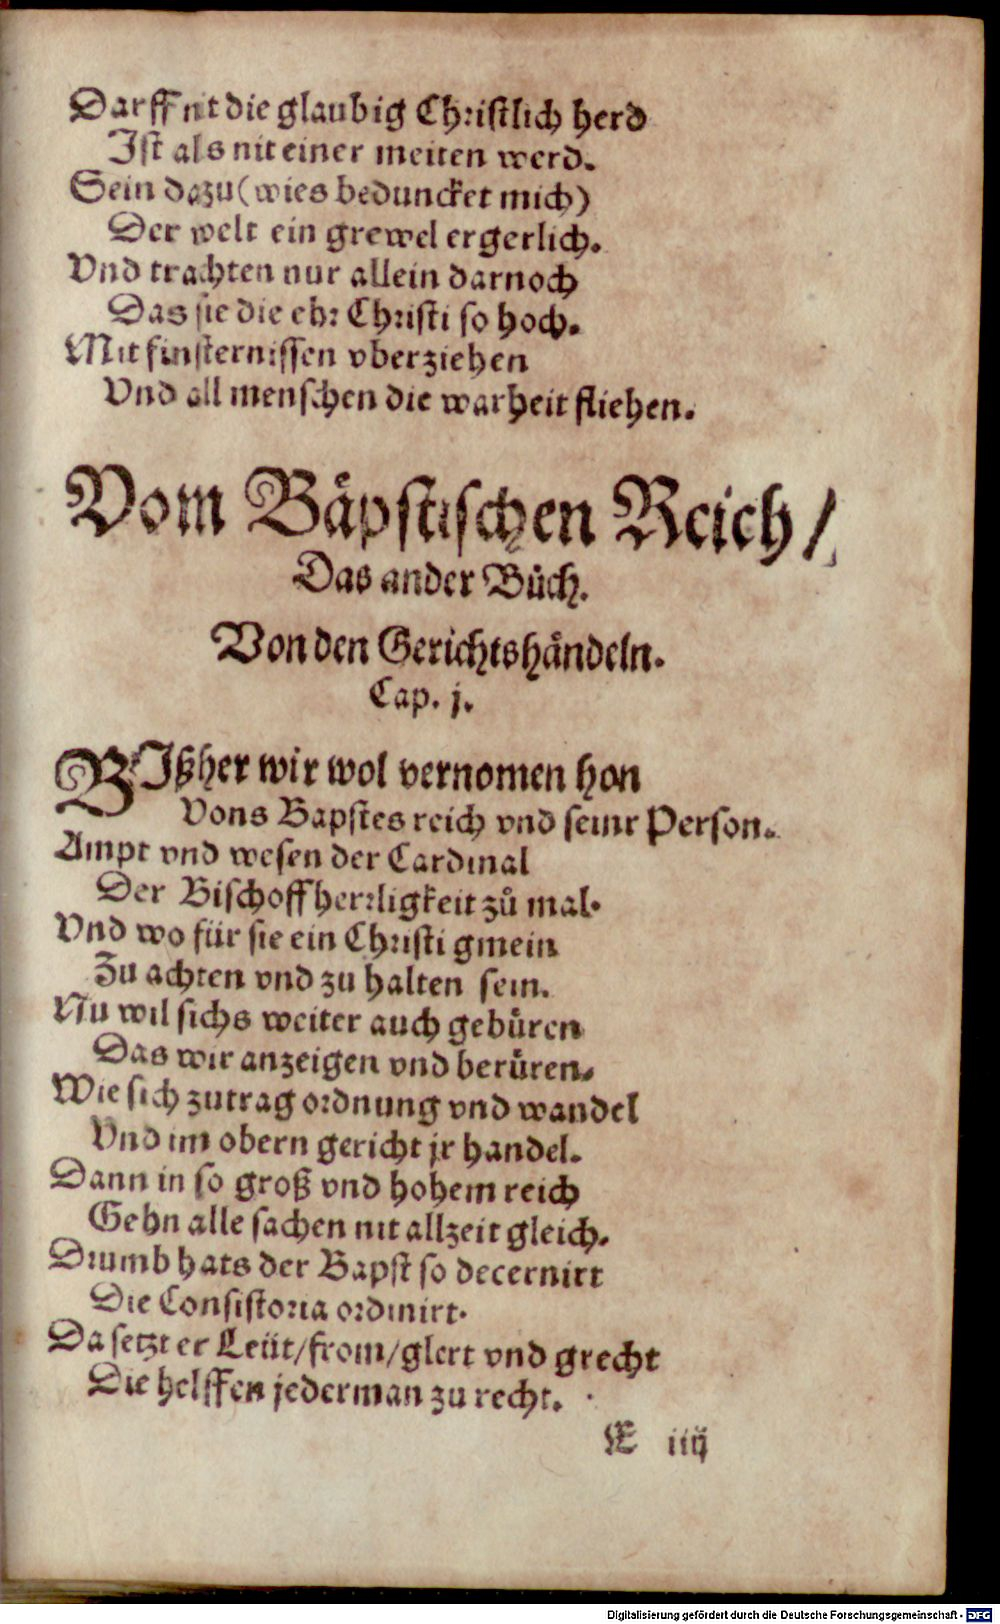 Darff nit die glaubig Christlich herd
Ist als nit einer meiten werd.
Sein dazu (wies beduncket mich)
Der welt ein grewel ergerlich.
Vnd trachten nur allein darnoch
Das sie die ehr Christi so hoch.
Mit finsternissen vberziehen
Vnd all menschen die warheit fliehen.
Vom Bäpstischen Reich/
Das ander Bůch.
Von den Gerichtshändeln.
Cap. j.
BIßher wir wol vernomen hon
Vons Bapstes reich vnd seinr Person.
Ampt vnd wesen der Cardinal
Der Bischoff herrligkeit zů mal.
Vnd wo für sie ein Christi gmein
Zu achten vnd zu halten sein.
Nu wil sichs weiter auch gebüren
Das wir anzeigen vnd berüren.
Wie sich zutrag ordnung vnd wandel
Vnd im obern gericht jr handel.
Dann in so groß vnd hohem reich
Gehn alle sachen nit allzeit gleich.
Drumb hats der Bapst so decernirt
Die Consistoria ordinirt.
Da setzt er Leüt/from/glert vnd grecht
Die helffen jederman zu recht.
E iiij
Digitalisierung gefördert durch die Deutsche Forschungsgemeinschaft - DFG